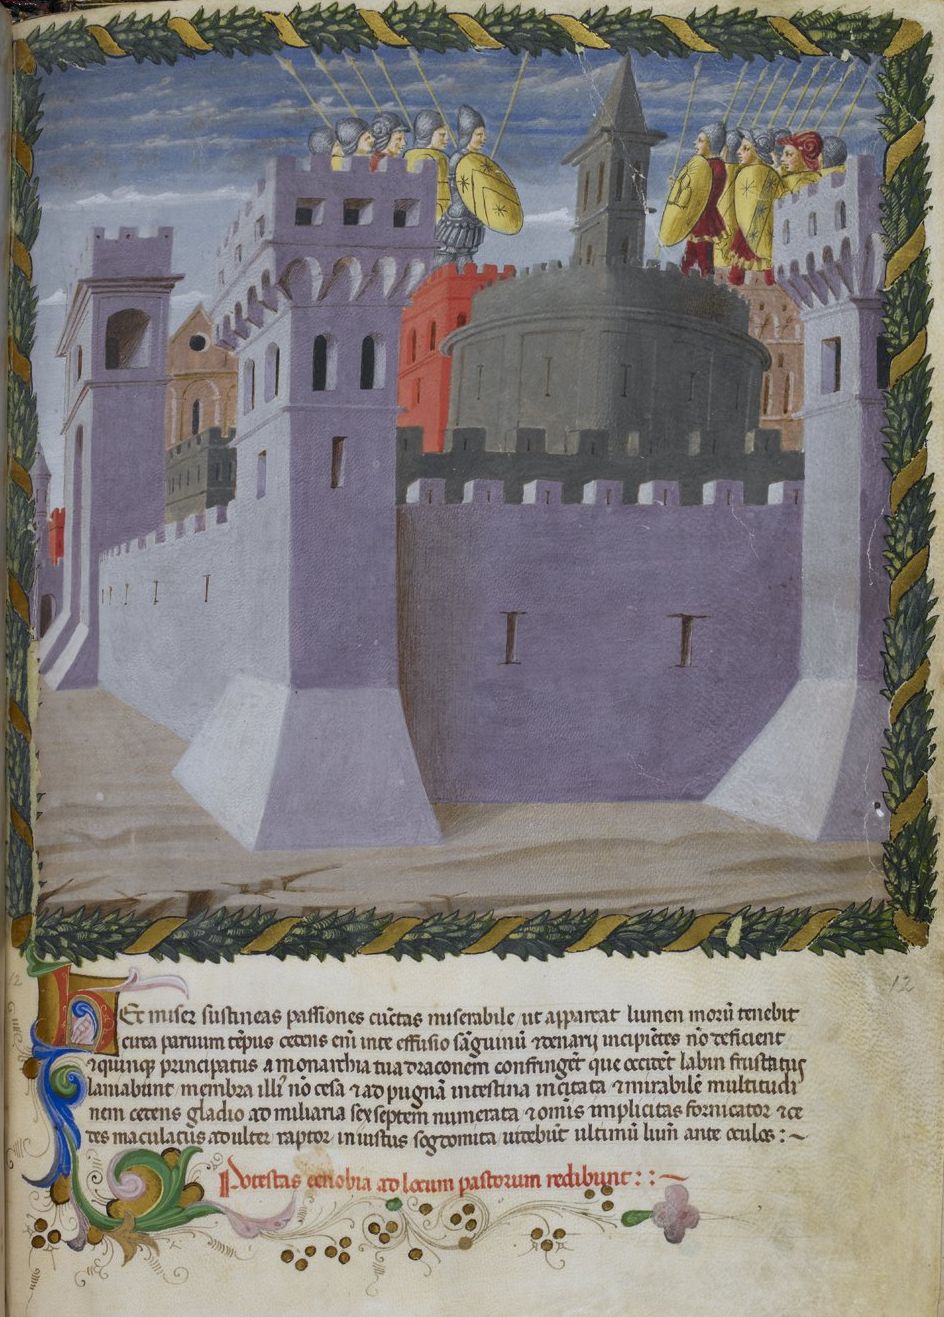 12
Et miser sustineas passiones cūctas miserabile ut appareat lumen morū tenebit
circa paruum tēpus decens enī inte effusio sāguinū & denarij incipiētes nō deficient
& quinqȝ principatus a monarchia tua draconem confringēt que occidet labin frustatus
laniabunt membra illi nō cesa & ad pugnā intestina incitata & mirabilē multitudi
nem cedens gladio ad miliaria sexseptem numerata & omīs implicitas fornicator & ce
des maculatus adulter raptor iniustus sogdomita uidebūt ultimū lum̄ ante oculos :~
Potestas cenobia ad locum pastorum redibunt : : ~